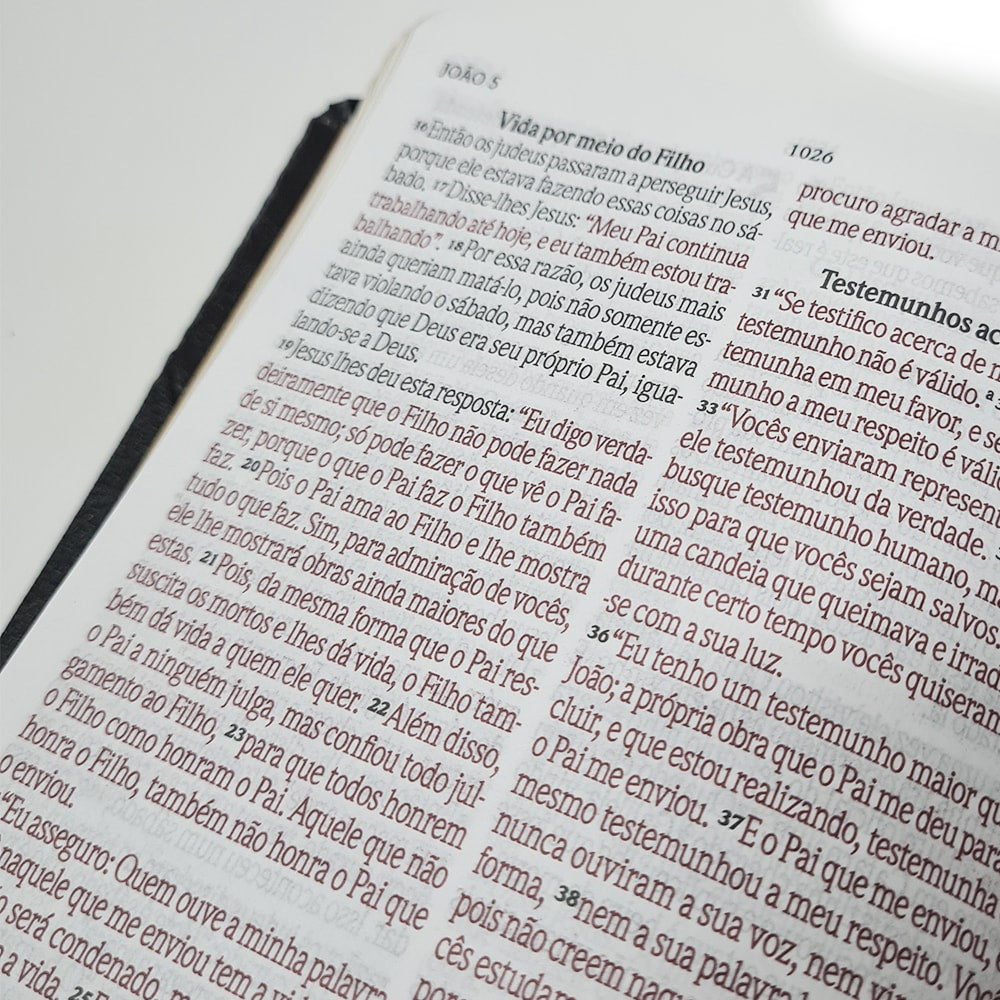 JOÃO 5
1026
Vida por meio do Filho
16 Então os judeus passaram a perseguir Jesus,
porque ele estava fazendo essas coisas no sá-
bado. 17 Disse-lhes Jesus: “Meu Pai continua
trabalhando até hoje, e eu também estou tra-
balhando”. 18 Por essa razão, os judeus mais
ainda queriam matá-lo, pois não somente es-
tava violando o sábado, mas também estava
dizendo que Deus era seu próprio Pai, igua-
lando-se a Deus.
19 Jesus lhes deu esta resposta: “Eu digo verda-
deiramente que o Filho não pode fazer nada
de si mesmo; só pode fazer o que vê o Pai fa-
zer, porque o que o Pai faz o Filho também
faz. 20 Pois o Pai ama ao Filho e lhe mostra
tudo o que faz. Sim, para admiração de vocês,
ele lhe mostrará obras ainda maiores do que
estas. 21 Pois, da mesma forma que o Pai res-
suscita os mortos e lhes dá vida, o Filho tam-
bém dá vida a quem ele quer. 22 Além disso,
o Pai a ninguém julga, mas confiou todo jul-
gamento ao Filho, 23 para que todos honrem
o Filho como honram o Pai. Aquele que não
honra o Filho, também não honra o Pai que
o enviou.
“Eu asseguro: Quem ouve a minha palavra
naquele que me enviou tem a
será condenado,
a vida. 25
procuro agradar a
que me enviou.
Testemunhos
31 “Se testifico acerca de
testemunho não é válido.
temunha em meu favor, e
munho a meu respeito é
33 “Vocês enviaram
ele testemunhou da verdade.
busque testemunho humano,
isso para que vocês sejam salvos
uma candeia que queimava e
durante certo tempo vocês quiseram
-se com a sua luz.
36 “Eu tenho um testemunho maior
João; a própria obra que o Pai me deu para
cluir, e que estou realizando, testemunha
o Pai me enviou. 37 E o Pai que me enviou,
mesmo testemunhou a meu respeito.
nunca ouviram a sua voz, nem
forma, 38 nem a sua palavra
pois não creem
cês